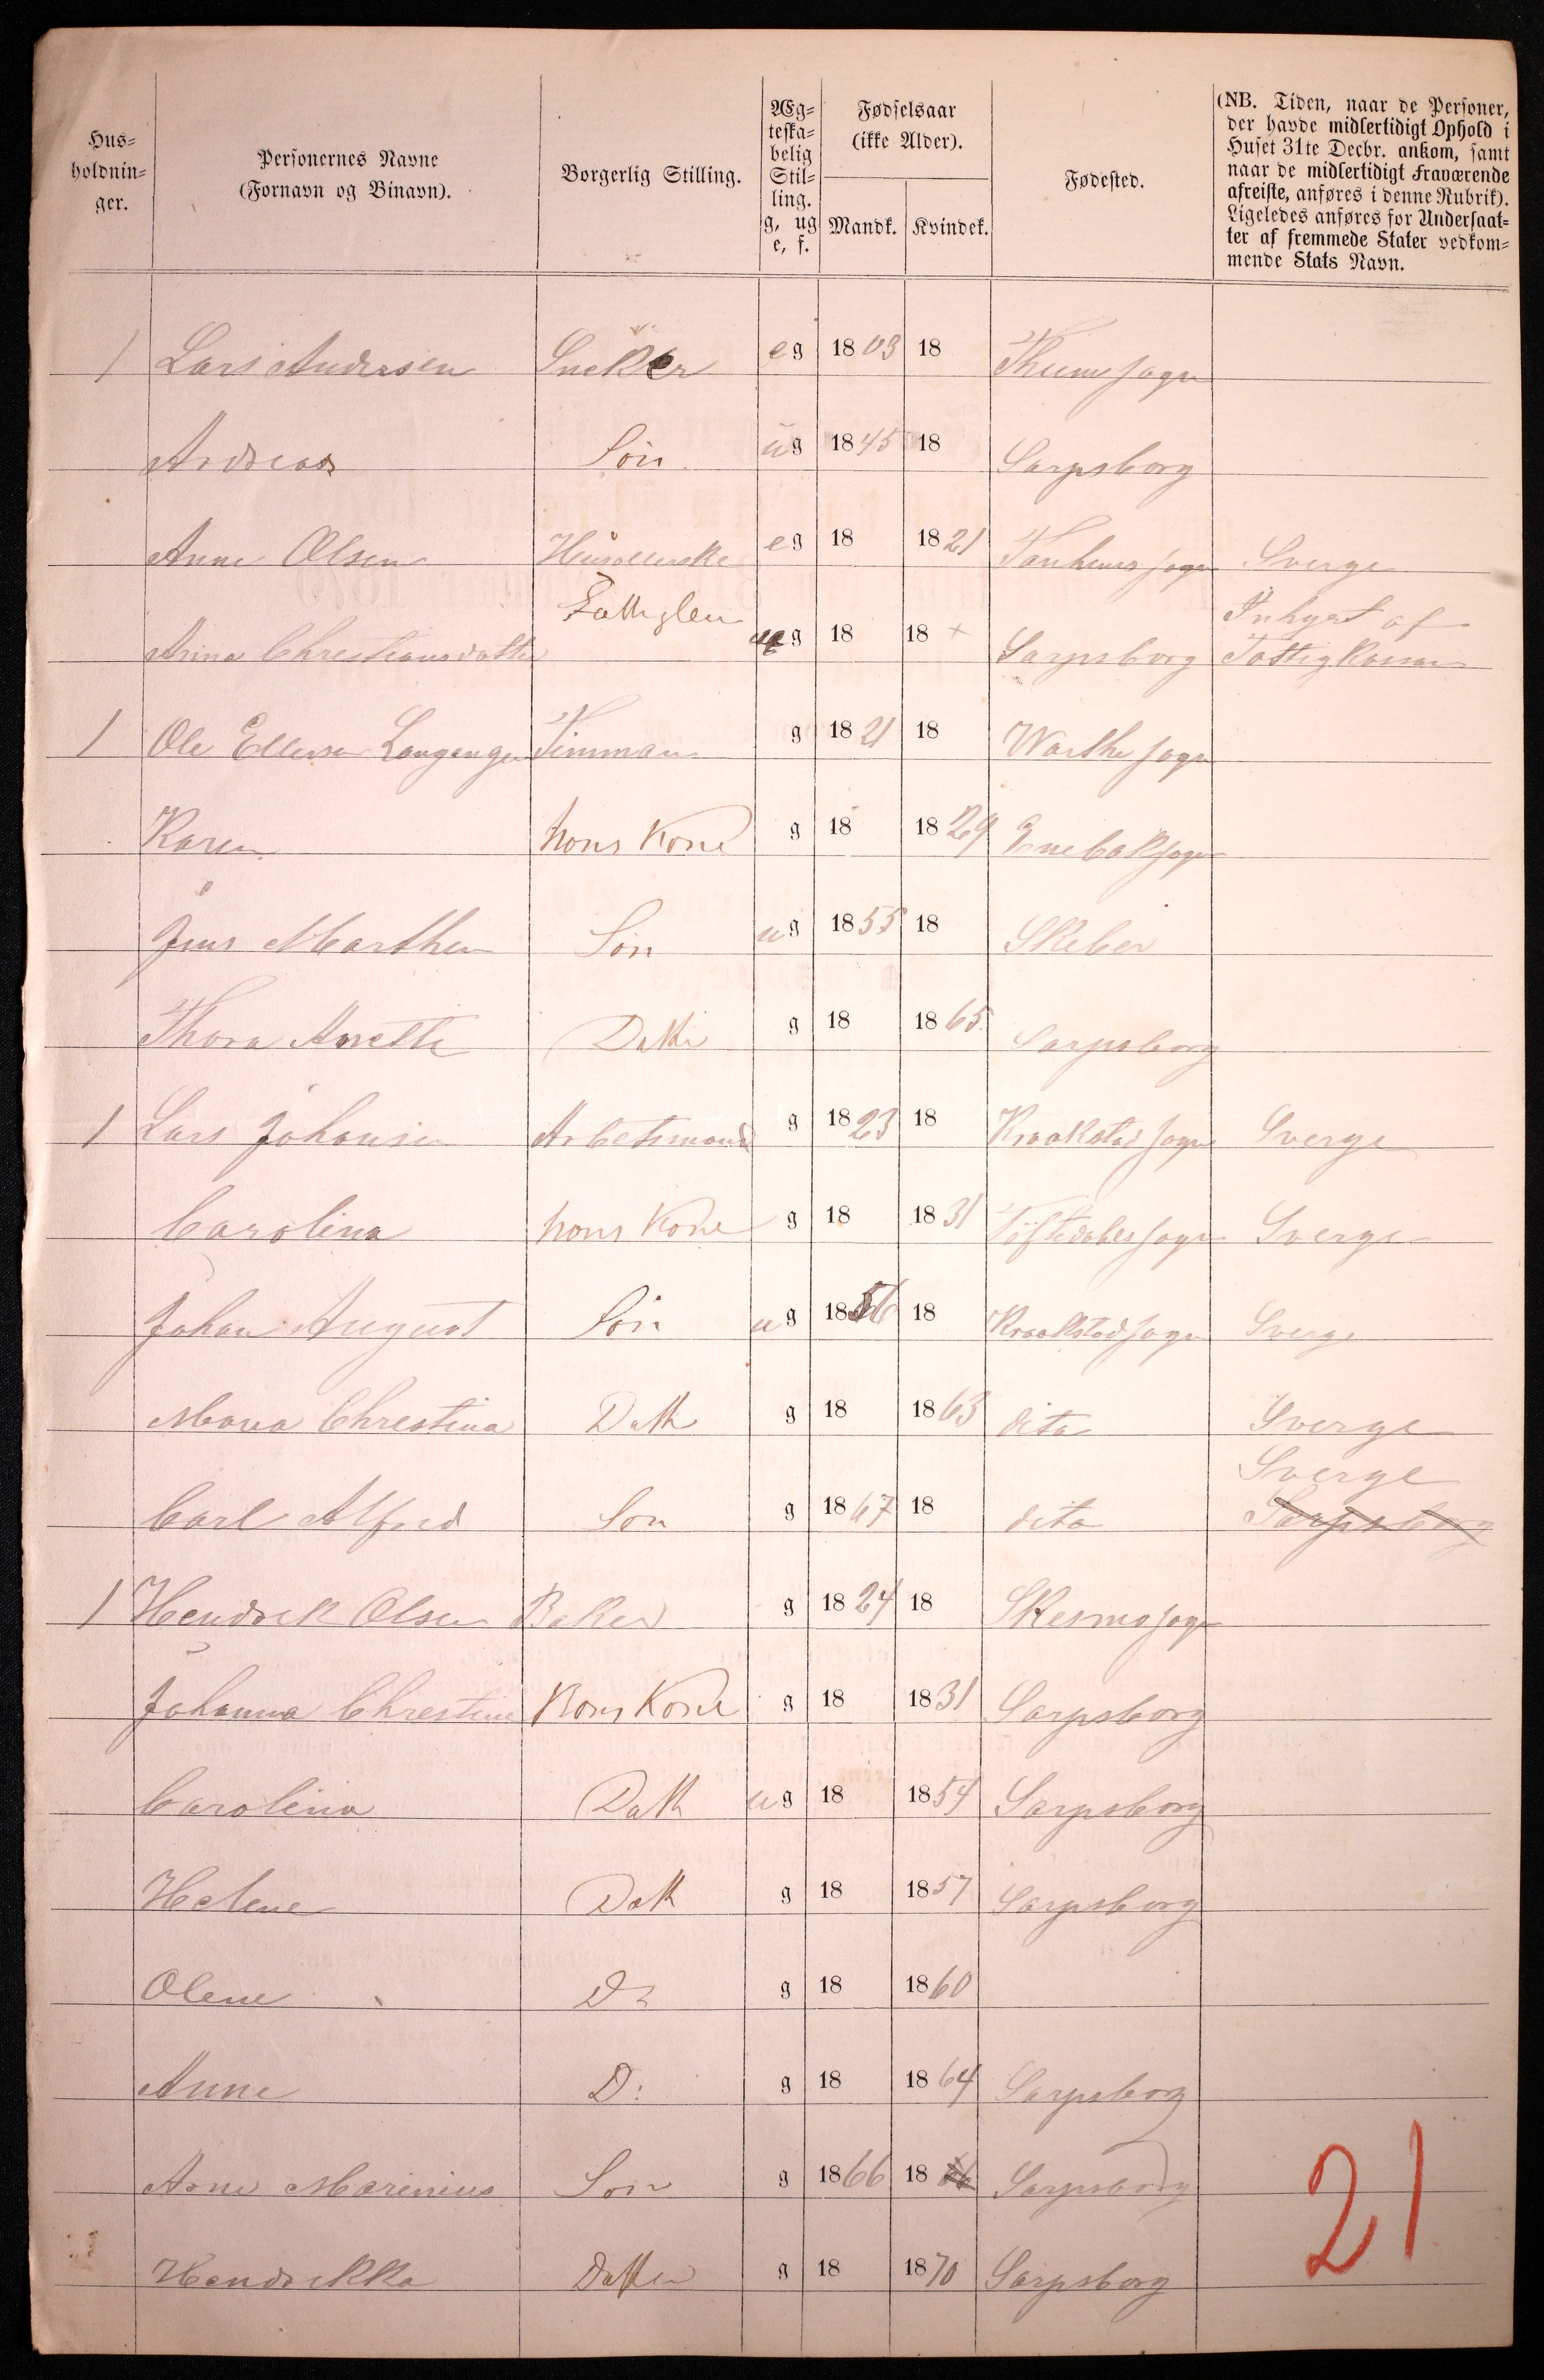 Hus=
holdnin=
ger.
Personernes Navne
(Fornavn og Binavn).
Borgerlig Stilling.
Æg=
teska=
belig
Stil=
ling.
g, ug
e, f.
Fødselsaar
(ikke Alder).
Mandk. Kvindek.
Fødested.
(NB. Tiden, naar de Personer,
der havde midlertidigt Ophold i
Huset 31te Decbr. ankom, samt
naar de midlertidigt Fraværende
afreiste, anføres i denne Rubrik).
Ligeledes anføres for Undersaat=
ter af fremmede Stater vedkom=
mende Stats Navn.
1 Lars Andersen Snekker eg 1803 18 Thune sogn
Andreas Sön ug 1845 18 Sarpsborg
Anne Olsen eg 18 1821 Tanhems sogn Sverge
Fattiglem Inhyst af
Anna Christiansdatter ug 18 18 + Sarpsborg Fattigkassen
1 Ole Ellevsen Langangen Timman g 1821 18 sogn
Karen hans Kone g 18 1829 Enebak sogn
Jens Marthin Sön ug 1855 18 Skeber
Thora Anette Datter g 18 1865 Sarpsborg
1 Lars Johansen Arbetsmand g 1823 18 Kraakstad sogn Sverge
Carolina hans Kone g 18 1831 Töftedahls sogn Sverge
Johan August Sön ug 1856 18 Kraakstad sogn Sverge
Maria Christina Datt g 18 1863 dito Sverge
Sverge
Carl Alfred Son g 1867 18 dito Sarpsborg
1 Hendrik Olsen Baker g 1824 18 Skesmo sogn
Johanna Christine Hans Kone g 18 1831 Sarpsborg
Carolina Datt ug 18 1854 Sarpsborg
Helene Datt g 18 1857 Sarpsborg
Olene D: g 18 1860
Anne D: g 18 1864 Sarpsborg
Arne Marinius Son g 1866 18 Sarpsborg
Hendrikka Datter g 18 1870 Sarpsborg
21